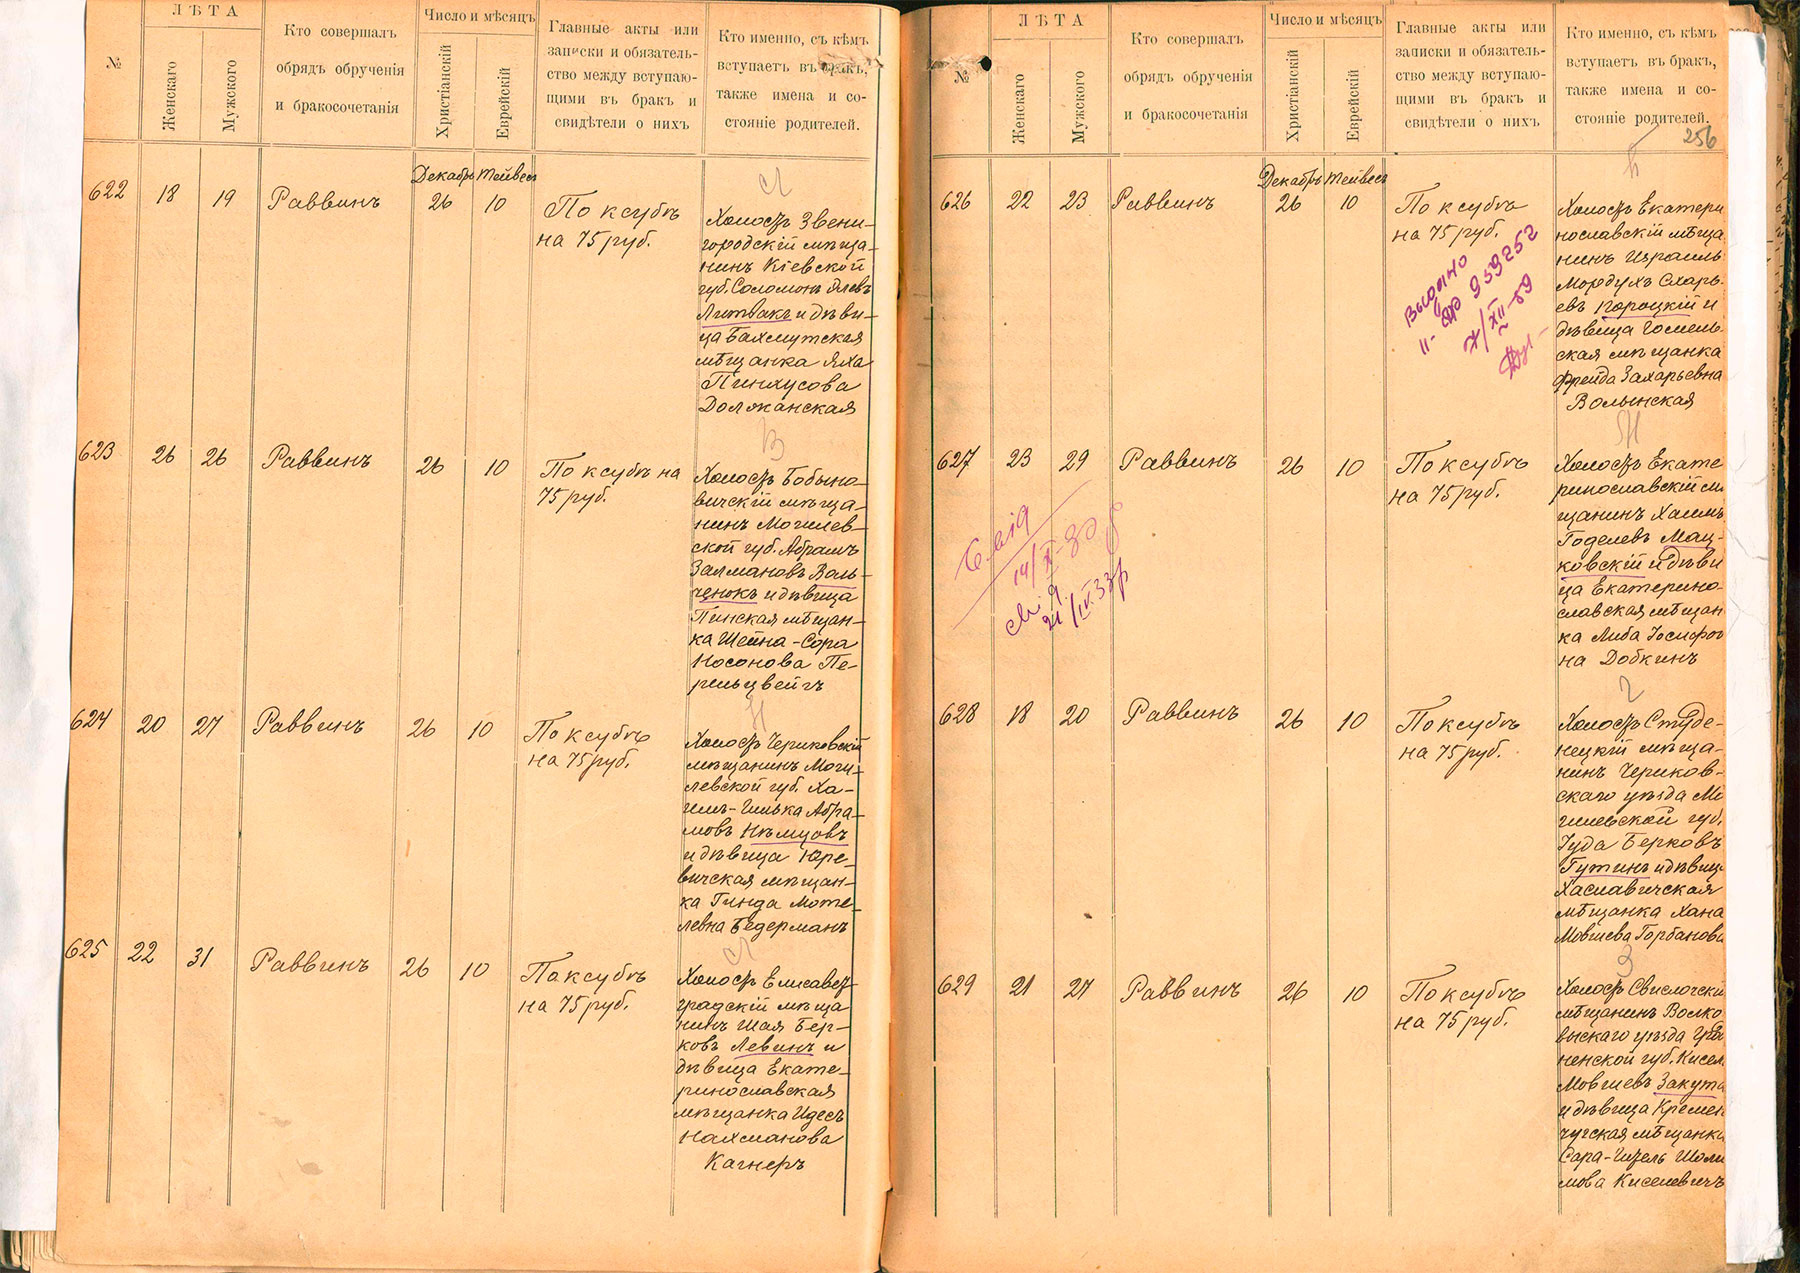 №
ЛѢТА
Женскаго
Мужского
Кто совершалъ
обрядъ обрученія
и бракосочетанія
Число и мѣсяцъ
Христіанскій
Еврейскій
Главные акты или
записки и обязатель-
ство между вступаю-
щими въ бракъ и
свидѣтели о нихъ
Кто именно, съ кѣмъ
вступаетъ въ бракъ,
также имена и со-
стояніе родителей.
Декабрь Тейвесъ
622 18 19 Раввинъ 26 10
По ксубѣ
на 75 руб.
Л
Холостъ Звени-
городскій мѣща-
нинъ Кіевской
губ. СоломонъЯлевъ
Литвакъ и дѣви-
ца Бахмутская
мѣщанка Яха
Пинхусова
Должанская
623 26 26 Раввинъ 26 10
По ксубѣ на
75 руб.
В
Холостъ Бобыно-
вичскій мѣща-
нинъ Могилев-
ской губ. Абрамъ
Залмановъ Воль-
ченокъ и дѣвица
Пинская мѣщан-
ка Шейна-Сора
Носонова Пе-
рельцвейгъ
624 20 27 Раввинъ 26 10
По ксубѣ
на 75 руб.
Н
Холостъ Чериковскій
мѣщанинъ Моги-
левской губ. Ха-
имъ-Гилька Абра-
мовъ Нѣмцовъ
и дѣвица Юре-
вичская мѣщан-
ка Гинда Моте-
левна Бедерманъ
625 22 31 Раввинъ 26 10
По ксубѣ
на 75 руб.
Л
Холостъ Елисавет-
градскій мѣща
нинъ Шая Бер-
ковъ Левинъ и
дѣвица Екате-
ринославская
мѣщанка Идесъ
Нахманова
Кагнеръ
№
ЛѢТА
Женскаго
Мужского
Кто совершалъ
обрядъ обрученія
и бракосочетанія
Число и мѣсяцъ
Христіанскій
Еврейскій
Главные акты или
записки и обязатель-
ство между вступаю-
щими въ бракъ и
свидѣтели о нихъ
Кто именно, съ кѣмъ
вступаетъ въ бракъ,
также имена и со-
стояніе родителей.
256
Декабрь Тейвесъ
626 22 23 Раввинъ 26 10
По ксубѣ
на 75 руб.
Выдано
959252
XII-59
Холостъ Екатери
нославскій мѣща
нинъ Израиль
Мордухъ Сларь-
евъ Городцкій и
дѣвица Гомель-
ская мѣщанка
Фрейда Захарьевна
Волынская
627 23 29 Раввинъ 26 10
По ксубѣ
на 75 руб.
М
Холостъ Екате
ринославскій мѣ
щанинъ Хаимъ
Годелевъ Мац-
ковскій и дѣви
ца Екатерино-
славская мѣщан-
ка Либа Іосифов
на Добкинъ
628 18 20 Раввинъ 26 10
По ксубѣ
на 75 руб.
Г
Холостъ Студе-
нецкій мѣща-
нинъ Чериков-
скаго уѣзда Мо
гилевской губ.
Іуда Берковъ
Гутинъ и дѣвица
Хаславичская
мѣщанка Хана
Мовшева Горбанова
629 21 27 Раввинъ 26 10
По ксубѣ
на 75 руб.
З
Холостъ Свислочскій
мѣщанинъ Волко
выскаго уѣзда Грод
ненской губ. Кисел
Мовшевъ Закута
и дѣвица Кремен
чугская мѣщанка
Сара-Гитель Шоли
мова Киселевичъ